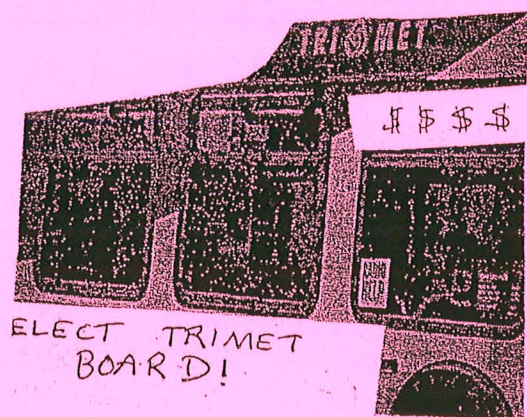 TRI MET
$ $ $ $
ELECT TRIMET
BOARD!